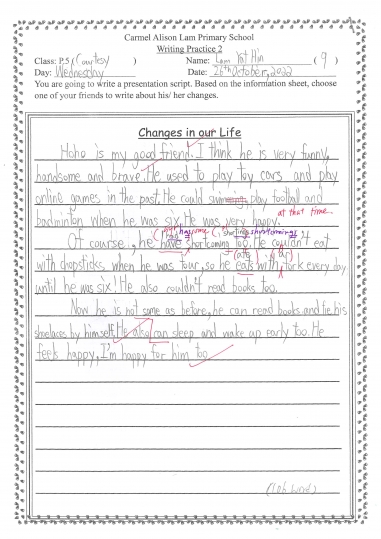 Carmel Alison Lam Primary School
Writing Practice 2
Class: P.5 (Courtesy ) Name: Lam Yat Hin ( 9 )
Day: Wednesday Date: 26th October, 2022
You are going to write a presentation script. Based on the information sheet, choose
one of your friends to write about his/ her changes.
Changes in our Life
Hoho is my good friend. I think he is very funny,
handsome and brave. He used to play toy cars and play
online games in the past. He could play football and
badminton when he was six. He was very happy. at that time.
Of course, he have shortcoming too. He couldn't eat
with chopsticks when he was four, so he eats with fork every day
until he was six! He also couldn't read books too.
Now he is not same as before, he can read books and tie his
shoelaces by himself. He also can sleep and wake up early too. He
feels happy, I'm happy for him too.